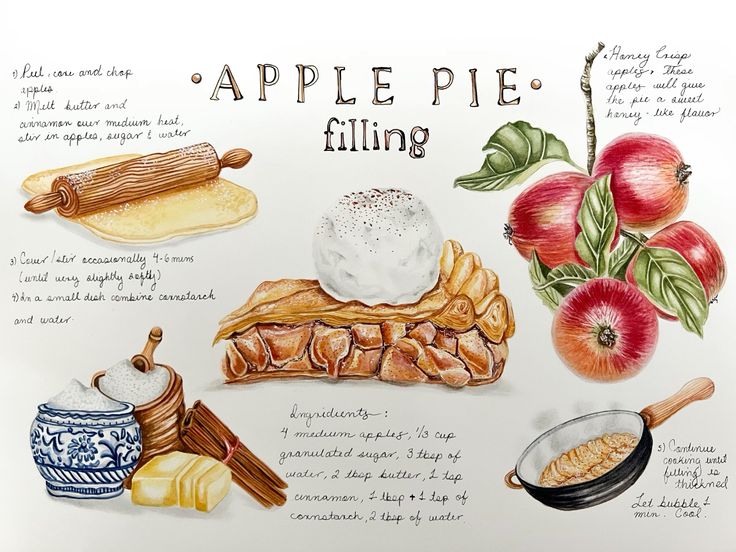 •APPLE PIE•
filling
1) Peel, core and chop
apples.
2) Melt butter and
cinnamon over medium heat,
stir in apples, sugar & water
• Honey Crisp
apples. These
apples will give
the pie a sweet
honey-like flavor
3) Cover/stir occasionally 4-6 mins
(until very slightly softly)
4) In a small dish combine cornstarch
and water.
Ingridients:
4 medium apples, 1/3 cup
granulated sugar, 3 tbsp of
water, 2 tbsp butter, 1 tsp
cinnamon, 1 tbsp + 1 tsp of
cornstarch, 2 tbsp of water.
5) Continue
cooking until
filling is
thickned
Let bubble 1
min. Cool.